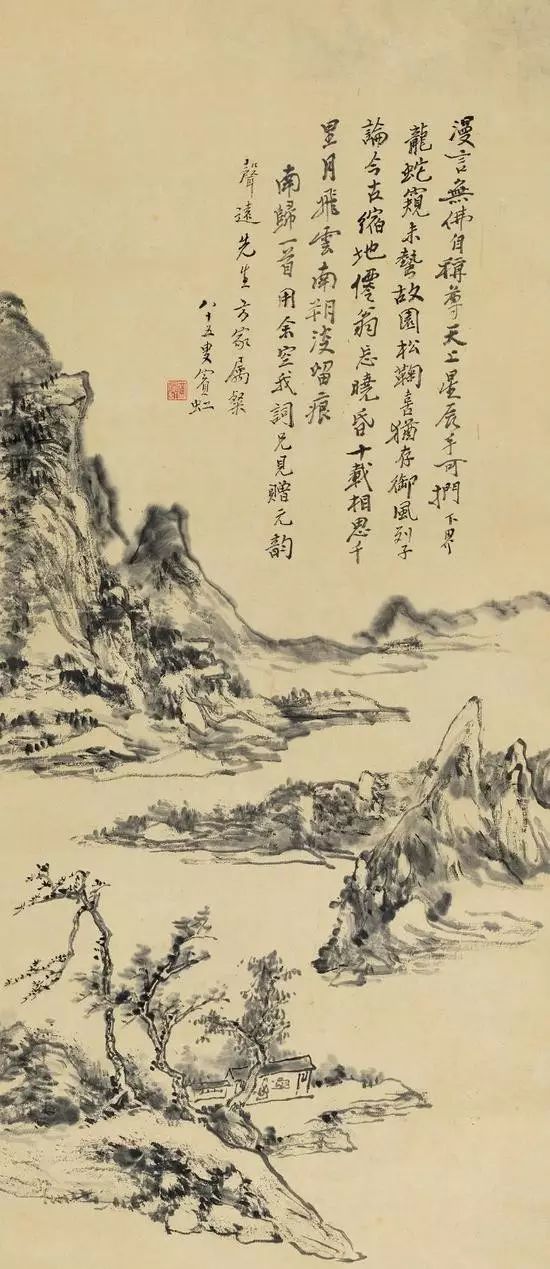 漫言無佛自稱尊天上星辰手可捫下界
龍蛇窺未蟄故園松鞠喜猶存御風列子
論今古縮地僊翁忘曉昏十載相思千
里月飛雲南朔淡留痕
南歸一首用余空我詞兄見贈元韵
聲遠先生方家屬粲
八十五叟賓虹